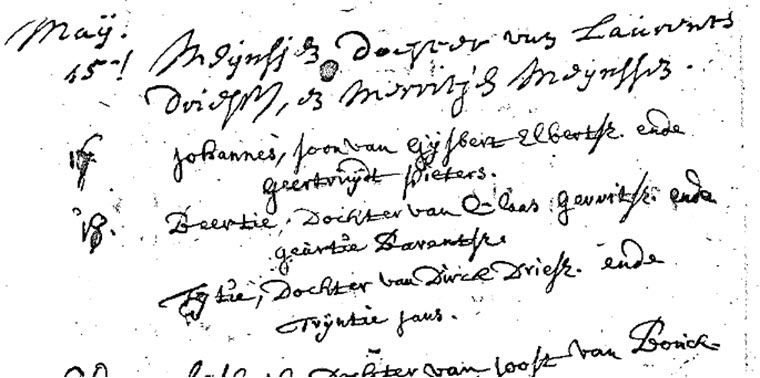 Maÿ.
15 Meÿnsje dochter van Laurents
Driess, e Merritje Meÿnsse.
Johannes, soon van Gijsbert Elbertsz. ende
Geertruÿdt Pieters.
18. Beertie, Dochter van Claas Gerritsz. ende
geurtie Barentse.
Dochter van Dirck Driesz. ende
Trÿntie Jans.
Dochter van Joost van